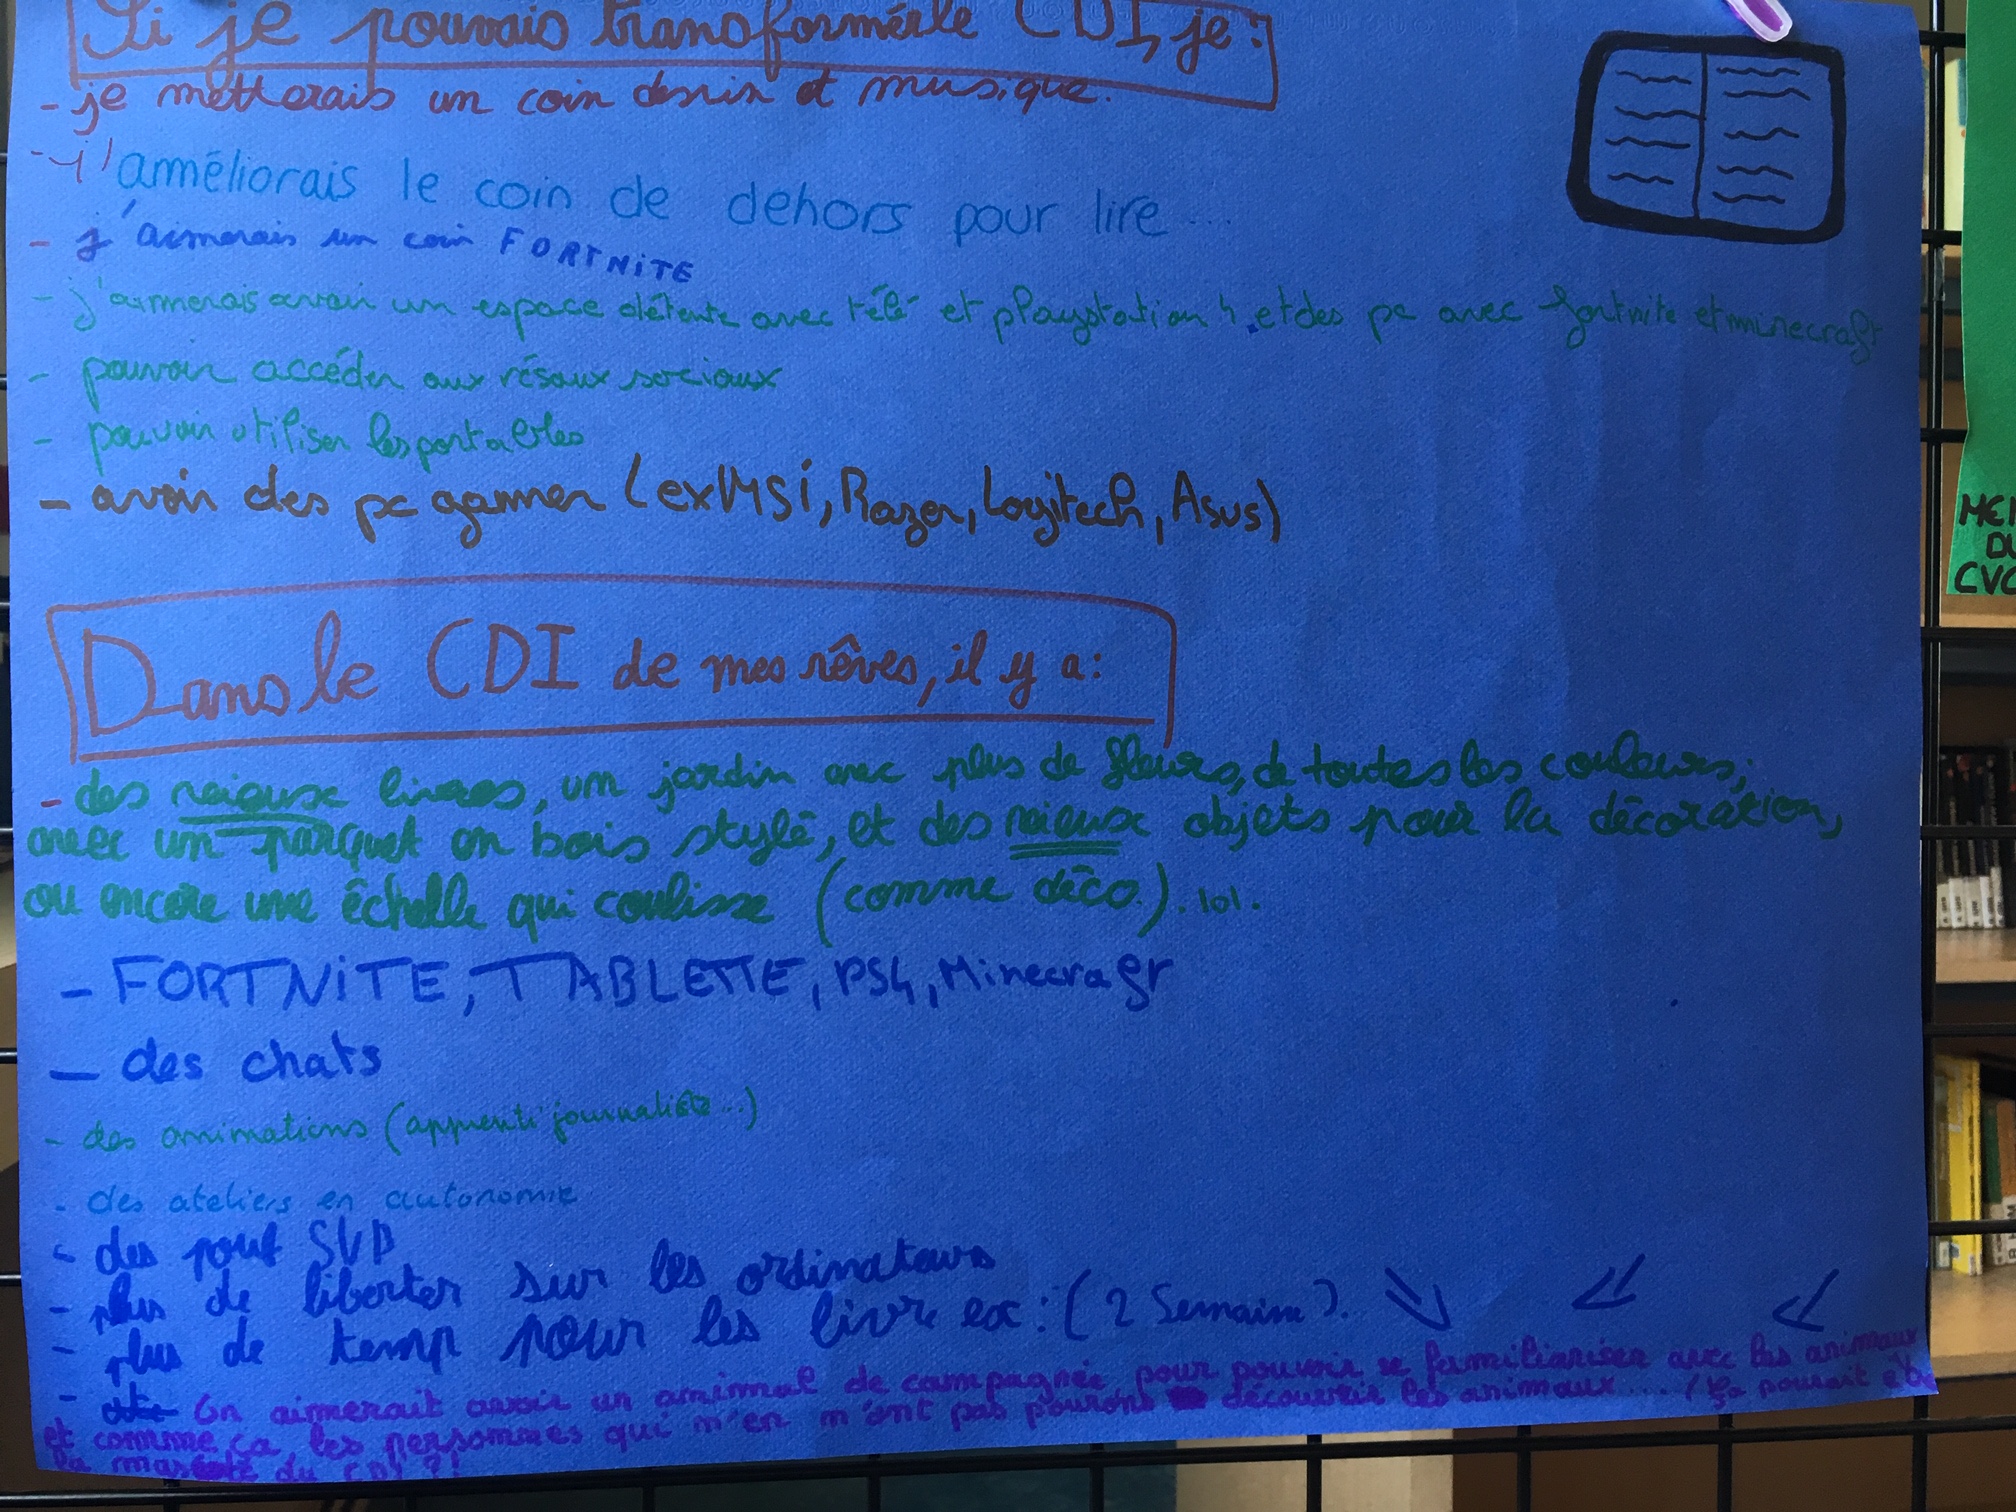 Si je pouvais transformer le CDI, je :
- je metterais un coin dessin et musique.
- j'améliorais le coin de dehors pour lire ...
- j'aimerais un coin FORTNiTE
- j'aimerais avoir un espace détente avec télé et playstation 4 et des pc avec fortnite et minecraft
- pouvoir accéder aux résaux sociaux
- pouvoir utiliser les portables
- avoir des pc gammer (ex MSi, Razer, Logitech, Asus)
Dans le CDI de mes rêves, il y a :
- des vieux livres, un jardin avec plus de fleurs, de toutes les couleurs,
avec un parquet en bois stylé, et des vieux objets pour la décoration,
ou encore une échelle qui coulisse (comme déco). lol.
- FORTNiTE, TABLETTE, PS4, Minecraft
- des chats
- des animations (apprenti journaliste...)
- des ateliers en autonomie
- des pouf SVP
- plus de liberter sur les ordinateurs
- plus de temp pour les livre ex : (2 Semaine).
- On aimerait avoir un animal de campagnée pour pouvoir se familiariser avec les animaux
et comme ça, les personnes qui n'en n'ont pas pourons découvrir les animaux... (ça pourait être
la mascote du CDI ?!
MEM
DU
CVC